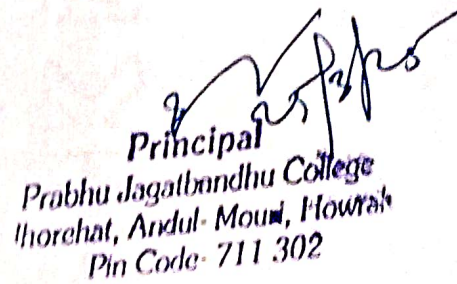 Principal
Prabhu Jagatbandhu College
Jhorehat, Andul-Mouri, Howrah
Pin Code- 711 302